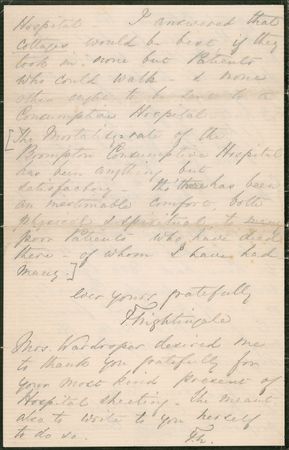 Hospital I answered that
Cottages would be best if they
took in none but Patients
who could walk - & none
other ought to be sent to a
Consumptive Hospital
[The Mortality rate of the
Brompton Consumptive Hospital
has been anything but
satisfactory. there has been
an inestimable comfort, both
physical & spiritual to many
poor Patients who have died
there - of whom I have had
many.]
ever yours gratefully
F. Nightingale
Mrs. Wardroper desired me
to thank you gratefully for
your most kind present of
Hospital sheeting. She meant
also to write to you herself
to do so. F.N.